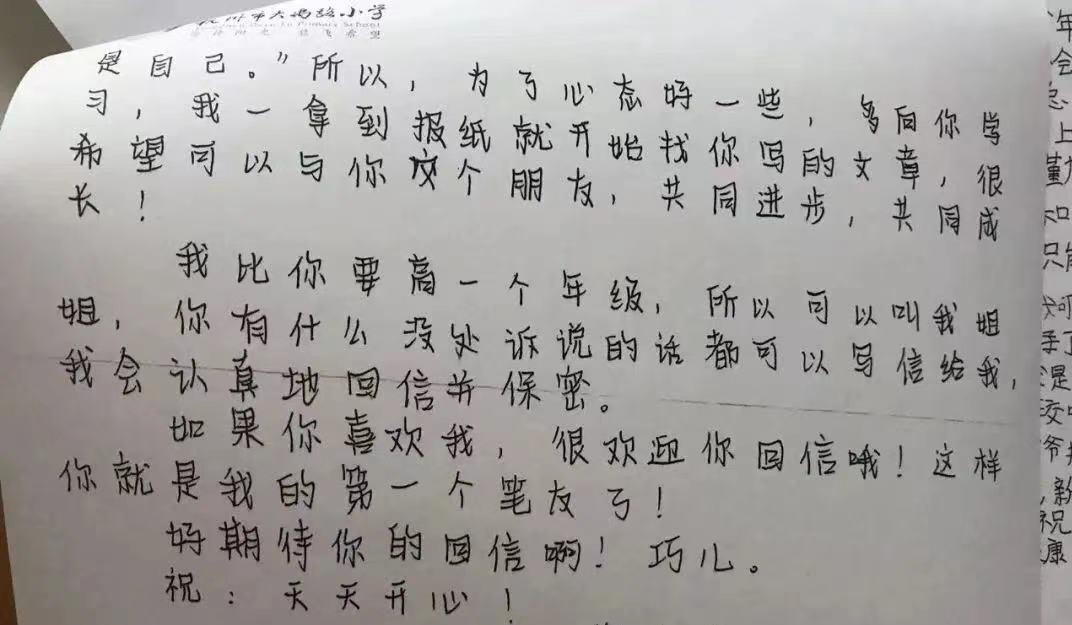 市大马路小学
是自己。”所以，为了心态好一些，多向你学
习，我一拿到报纸就开始找你写的文章，很
希望可以与你交个朋友，共同进步，共同成
长！
我比你要高一个年级，所以可以叫我姐
姐，你有什么没处诉说的话都可以写信给我，
我会认真地回信并保密。
如果你喜欢我，很欢迎你回信哦！这样
你就是我的第一个笔友了！
好期待你的回信啊！巧儿。
祝：天天开心！
年
会
急
上
懂
知
只能
是
交
爷
新
祝
康